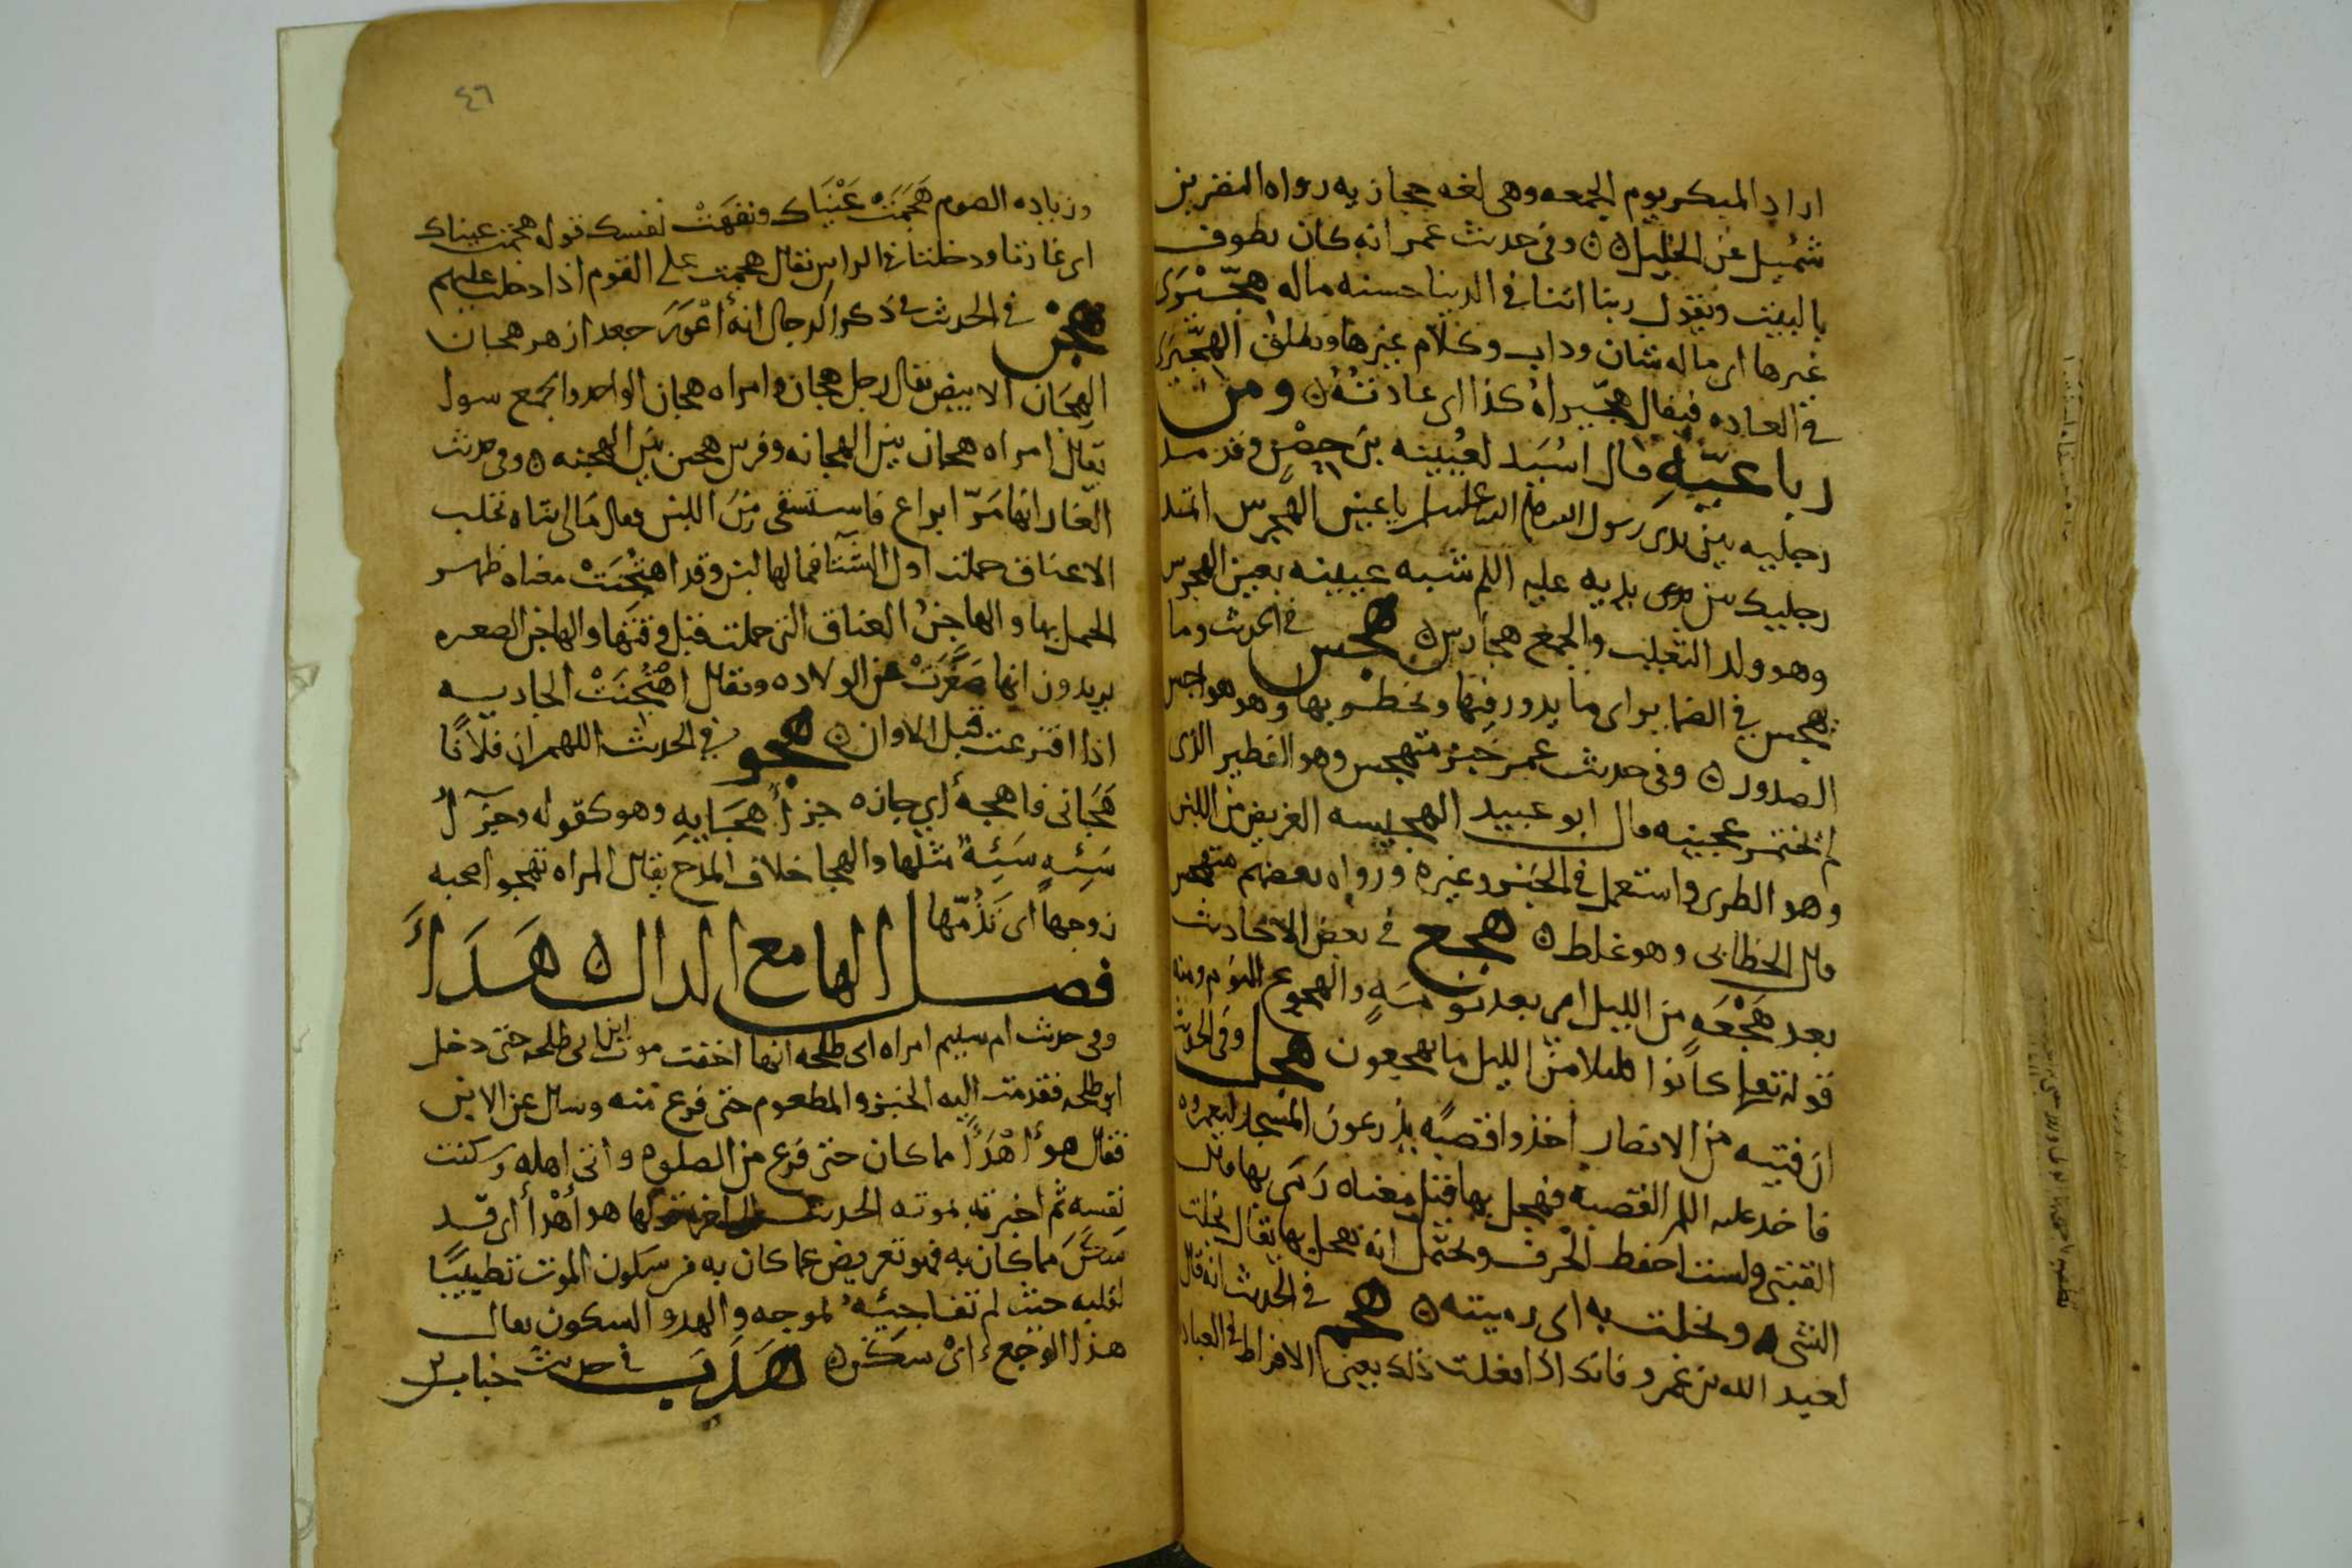 اراد المبكر يوم الجمعه وهى لغه حجازيه رواه النضر بن
شميل عن الخليل ه وفى حديث عمر انه كان يطوف
بالبيت ويقول ربنا اتنا فى الدنيا حسنه ماله هجّيرى
غيرها اى ماله شان وداب وكلام غيرها ويطلق الهجّيرى
فى العاده فيقال هجّيراهُ كذا اى عادتُهُ ه ومن
رباعيّهِ قال اسُيَد لعُيينه بن حِصْنٍ وقد مد
رجليه بين يدى رسول الله صلى الله عليه وسلم يا عين الهجرس اتمد
رجليك بين يدى يديه عليه السلم شبه عيينه بعين الهجرس
وهو ولد الثعلب والجمع هجارس ه هجس فى الحديث وما
يهجس فى الضماير اى ما يدور فيها ويخطر بها وهو هواجس
الصدور ه وفى حديث عمر خبز متهجس وهو الفطير الذى
لم يختمر عجينه قال ابو عبيد الهجيسه الغريض من اللبن
وهو الطرى واستعمل فى الخبز وغيره ورواه بعضهم متهجر
قال الخطابى وهو غلط ه هجع فى بعض الاحاديث
بعد هَجْعَهٍ من الليل اى بعد نومَهٍ والهجوع النوم ومنه
قوله تعلى كانوا قليلا من الليل ما يهجعون هجل وفى الحديث
ان فتيه من الانصار اخذوا قصبًه يذرعون المسجد ليعمروه
فاخذ عليه السلم القصبه فهجل بها قيل معناه رَمَى بها قال
القتبى ولست احفظ الحرف ويحتمل انه نجل بها يقال نجلت
الشى ونجلت به اى رميته ه هجم فى الحديث انه قال
لعبد الله بن عمرو فانك اذا فعلت ذلك يعنى الافراط فى العباد
٤٦
وزياده الصوم هَجَمَتْ عَيْنَاك ونفهَتْ نفسك قوله هجمت عيناك
اى غارتا ودخلتا فى الراس يقال هجمت على القوم اذا دخلت عليهم
هجن فى الحديث فى ذكر الدجال انه أعْوَرَ جعد ازهر هجان
الهِجَان الابيض يقال رجل هجان وامراه هجان الواحد والجمع سوا
يقال امراه هجان بين الهجانه وفرس هجين بين الهجنه ه وفى حديث
الغار انهما مَرّا براع فاستسقى من اللبن فقال مالى شاه تحلب
الا عناق حملت اول الشتا فما لها لبن وقد اهتُجنَتْ معناه ظهر
الحمل بها والهاجنُ العناق التى حملت قبل وقتها والهاجن الصغيره
يريدون انها صَغُرَتْ عن الولاده ويقال اهْتُجنَتْ الجاريه
اذا افترعت قبل الاوان ه هجو فى الحديث اللهم ان فلانًا
هَجَانى فاهجهُ أي جازه جزأَ هجَايِهِ وهو كقوله وجَزَآءُ
سَيِّئهٍ سَيِّئهٌ مثلها والهجا خلاف المدح يقال المراه تهجو صحبه
زوجها اى تَذُمّها
فصل الها مع الدال ه هَدَأَ
وفى حديث ام سليم امراه ابى طلحه انها اخفت موت ابن ابى طلحه حتى دخل
ابو طلحه فقدمت اليه الخبز والمطعوم حتى فرغ منه وسال عن الابن
فقال هو أَهْدَأُ مما كان حتى فرغ من الصلوه واتى اهله وسكنت
نفسه ثم اخبرته بموته الحديث قولها هو أَهْدأُ اى قد
سَكَنَ مما كان به فهو تعريض عما كان به من سكون الموت تطييبًا
لقلبه حيث لم تفاجيئهُ بموجعه والهدو السكون يقال
هذا الوجع اى سكن ه هَدَبَ فى حديث خباب بن